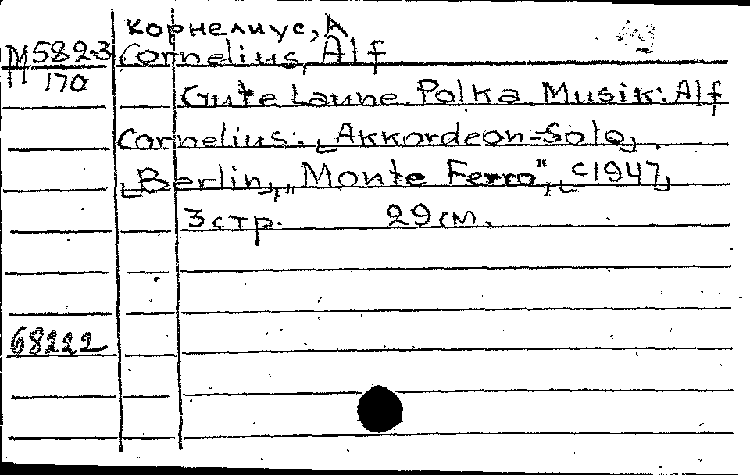 Корнелиус, А
М5823 Cornelius, Alf
П 170
Gute Laune. Polka. Musik: Alf
Cornelius. [Akkordeon-Solo].
[Berlin], „Monte Ferro", [c1947]
3 стр. 29 см.
68222